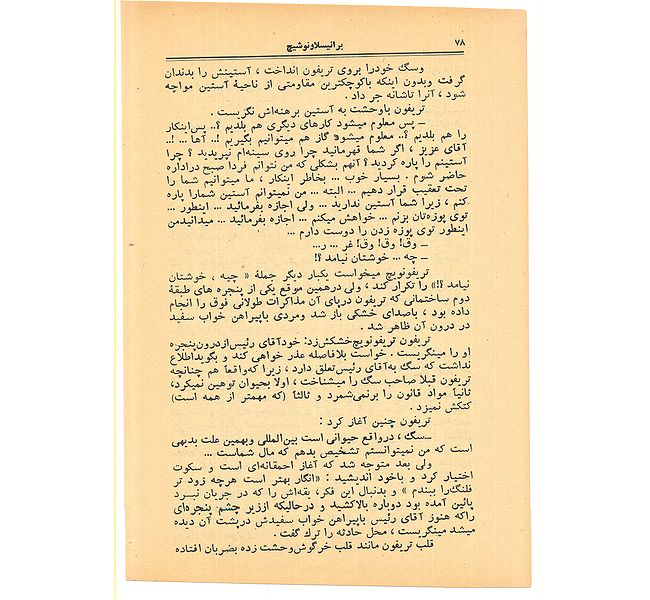 ۷۸
برانیسلاونوشیچ
وسگ خودرا بروی تریفون انداخت ، آستینش را بدندان
گرفت وبدون اینکه باکوچکترین مقاومتی از ناحیهٔ آستین مواجه
شود ، آنرا تاشانه جر داد .
تریفون باوحشت به آستین برهنه‌اش نگریست .
ـ پس معلوم میشود کارهای دیگری هم بلدیم ؟.. پس‌اینکار
را هم بلدیم ؟.. معلوم میشود گاز هم میتوانیم بگیریم !.. آها ... !..
آقای عزیز ، اگر شما قهرمانید چرا روی سینه‌ام نپریدید ؟ چرا
آستینم را پاره کردید ؟ آنهم بشکلی که من نتوانم فردا صبح دراداره
حاضر شوم . بسیار خوب ... بخاطر اینکار ، ما میتوانیم شما را
تحت تعقیب قرار دهیم ... البته ... من نمیتوانم آستین شمارا پاره
کنم ، زیرا شما آستین ندارید ... ولی اجازه بفرمائید ... اینطور ...
توی پوزه‌تان بزنم ... خواهش میکنم ... اجازه بفرمائید ... میدانیدمن
اینطور توی پوزه زدن را دوست دارم ...
ـ وق! وق! وق! غر ... ر...
ـ چه ... خوشتان نیامد ؟!
تریفونویچ میخواست یکبار دیگر جملهٔ « چیه ، خوشتان
نیامد ؟!» را تکرار کند ، ولی درهمین موقع یکی از پنجره های طبقهٔ
دوم ساختمانی که تریفون درپای آن مذاکرات طولانی فوق را انجام
داده بود ، باصدای خشکی باز شد ومردی باپیراهن خواب سفید
در درون آن ظاهر شد .
تریفون تریفونویچ‌خشکش‌زد: خودآقای رئیس‌ازدرون‌پنجره
او را مینگریست . خواست بلافاصله عذر خواهی کند و بگویداطلاع
نداشت که سگ به‌آقای رئیس‌تعلق دارد ، زیرا که‌واقعا هم چنانچه
تریفون قبلا صاحب سگ را میشناخت ، اولا بحیوان توهین نمیکرد،
ثانیا مواد قانون را برنمی‌شمرد و ثالثا (که مهمتر از همه است)
کتکش نمیزد .
تریفون چنین آغاز کرد :
ـسگ ، درواقع حیوانی است بین‌المللی وبهمین علت بدیهی
است که من نمیتوانستم تشخیص بدهم که مال شماست ...
ولی بعد متوجه شد که آغاز احمقانه‌ای است و سکوت
اختیار کرد و باخود اندیشید : «انگار بهتر است هرچه زود تر
فلنگ‌را ببندم » و بدنبال این فکر، یقه‌اش را که در جریان نبرد
پائین آمده بود دوباره بالاکشید و درحالیکه اززیر چشم پنجره‌ای
راکه هنوز آقای رئیس باپیراهن خواب سفیدش درپشت آن دیده
میشد مینگریست ، محل حادثه را ترك گفت .
قلب تریفون مانند قلب خرگوش‌وحشت زده بضربان افتاده